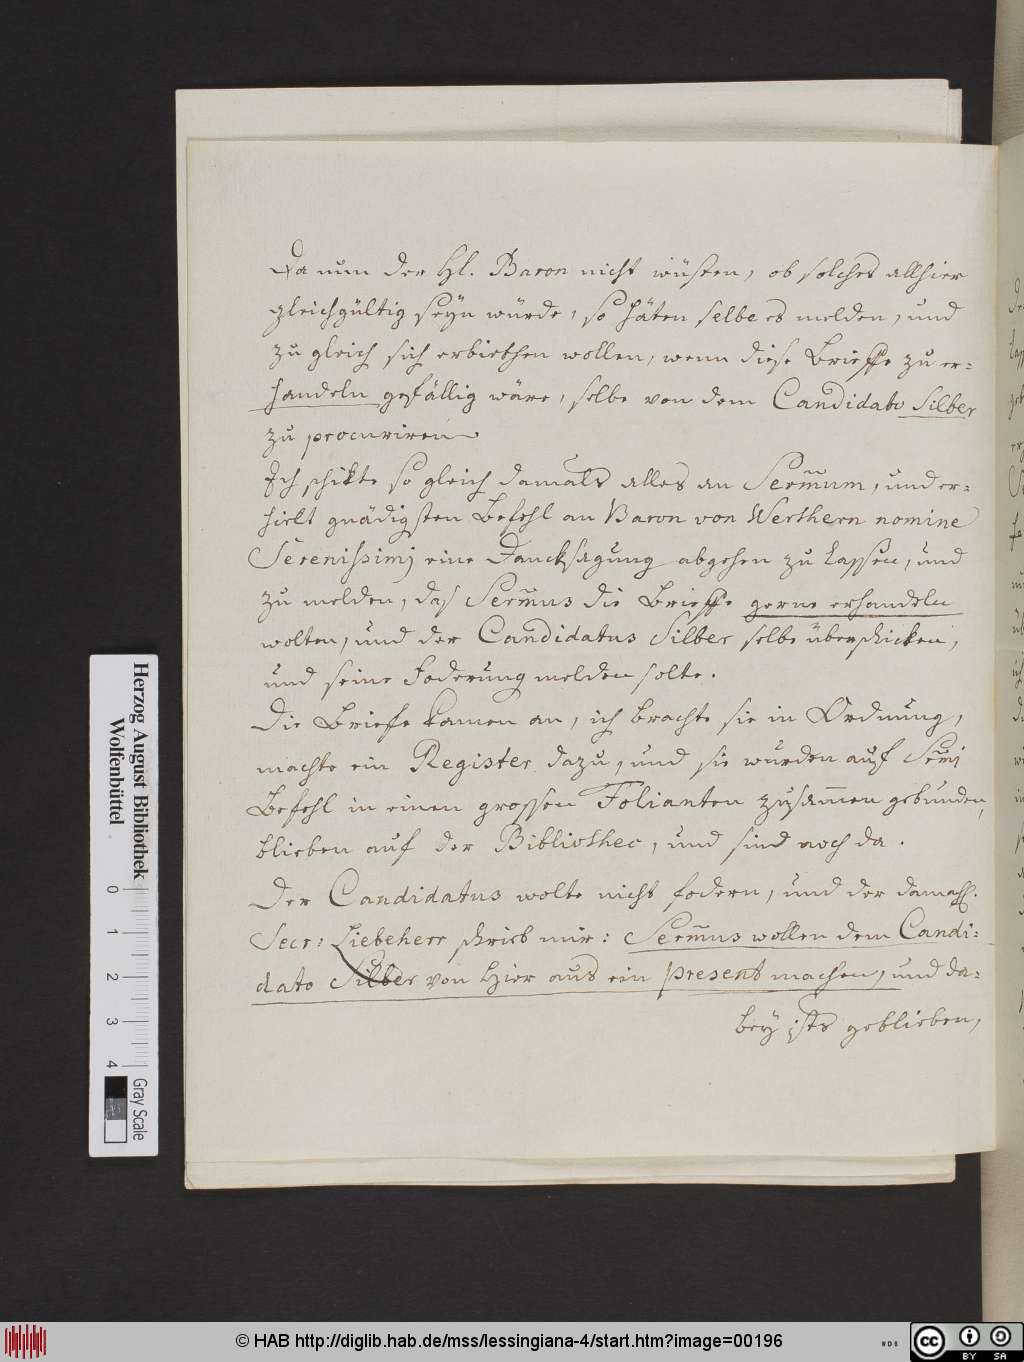 Da nun der H. Baron nicht wüsten, ob solches allhier
gleichgültig seyn würde, so häten selbe es melden, und
zu gleich sich erbiethen wollen, wenn diese Brieffe zu er=
handeln gefällig wäre, selbe von dem Candidato Silber
zu procuriren
Ich schikte so gleich damals alles an Sermum, und er=
hielt gnädigsten Befehl an Baron von Werthern nomine
Serenissimj eine Dancksagung abgehen zu lassen, und
zu melden, das Sermus die Brieffe gerne erhandeln
wolten, und der Candidatus Silber selbe überschicken,
und seine Foderung melden solte.
Die Briefe kamen an, ich brachte sie in Ordnung,
machte ein Register dazu, und sie wurden auf Semj
Befehl in einen grossen Folianten zusam̅en gebunden,
blieben auf der Bibliothec, und sind noch da.
Der Candidatus wolte nicht fodern, und der damahl.
Secr: Liebeherr schrieb mir: Sermus wollen dem Candi=
dato Silber von hier aus ein present machen, und da=
bey ists geblieben,
Herzog August Bibliothek
Wolfenbüttel
0 1 2 3 4
Gray Scale
© HAB http://diglib.hab.de/mss/lessingiana-4/start.htm?image=00196
WDB
cc BY SA